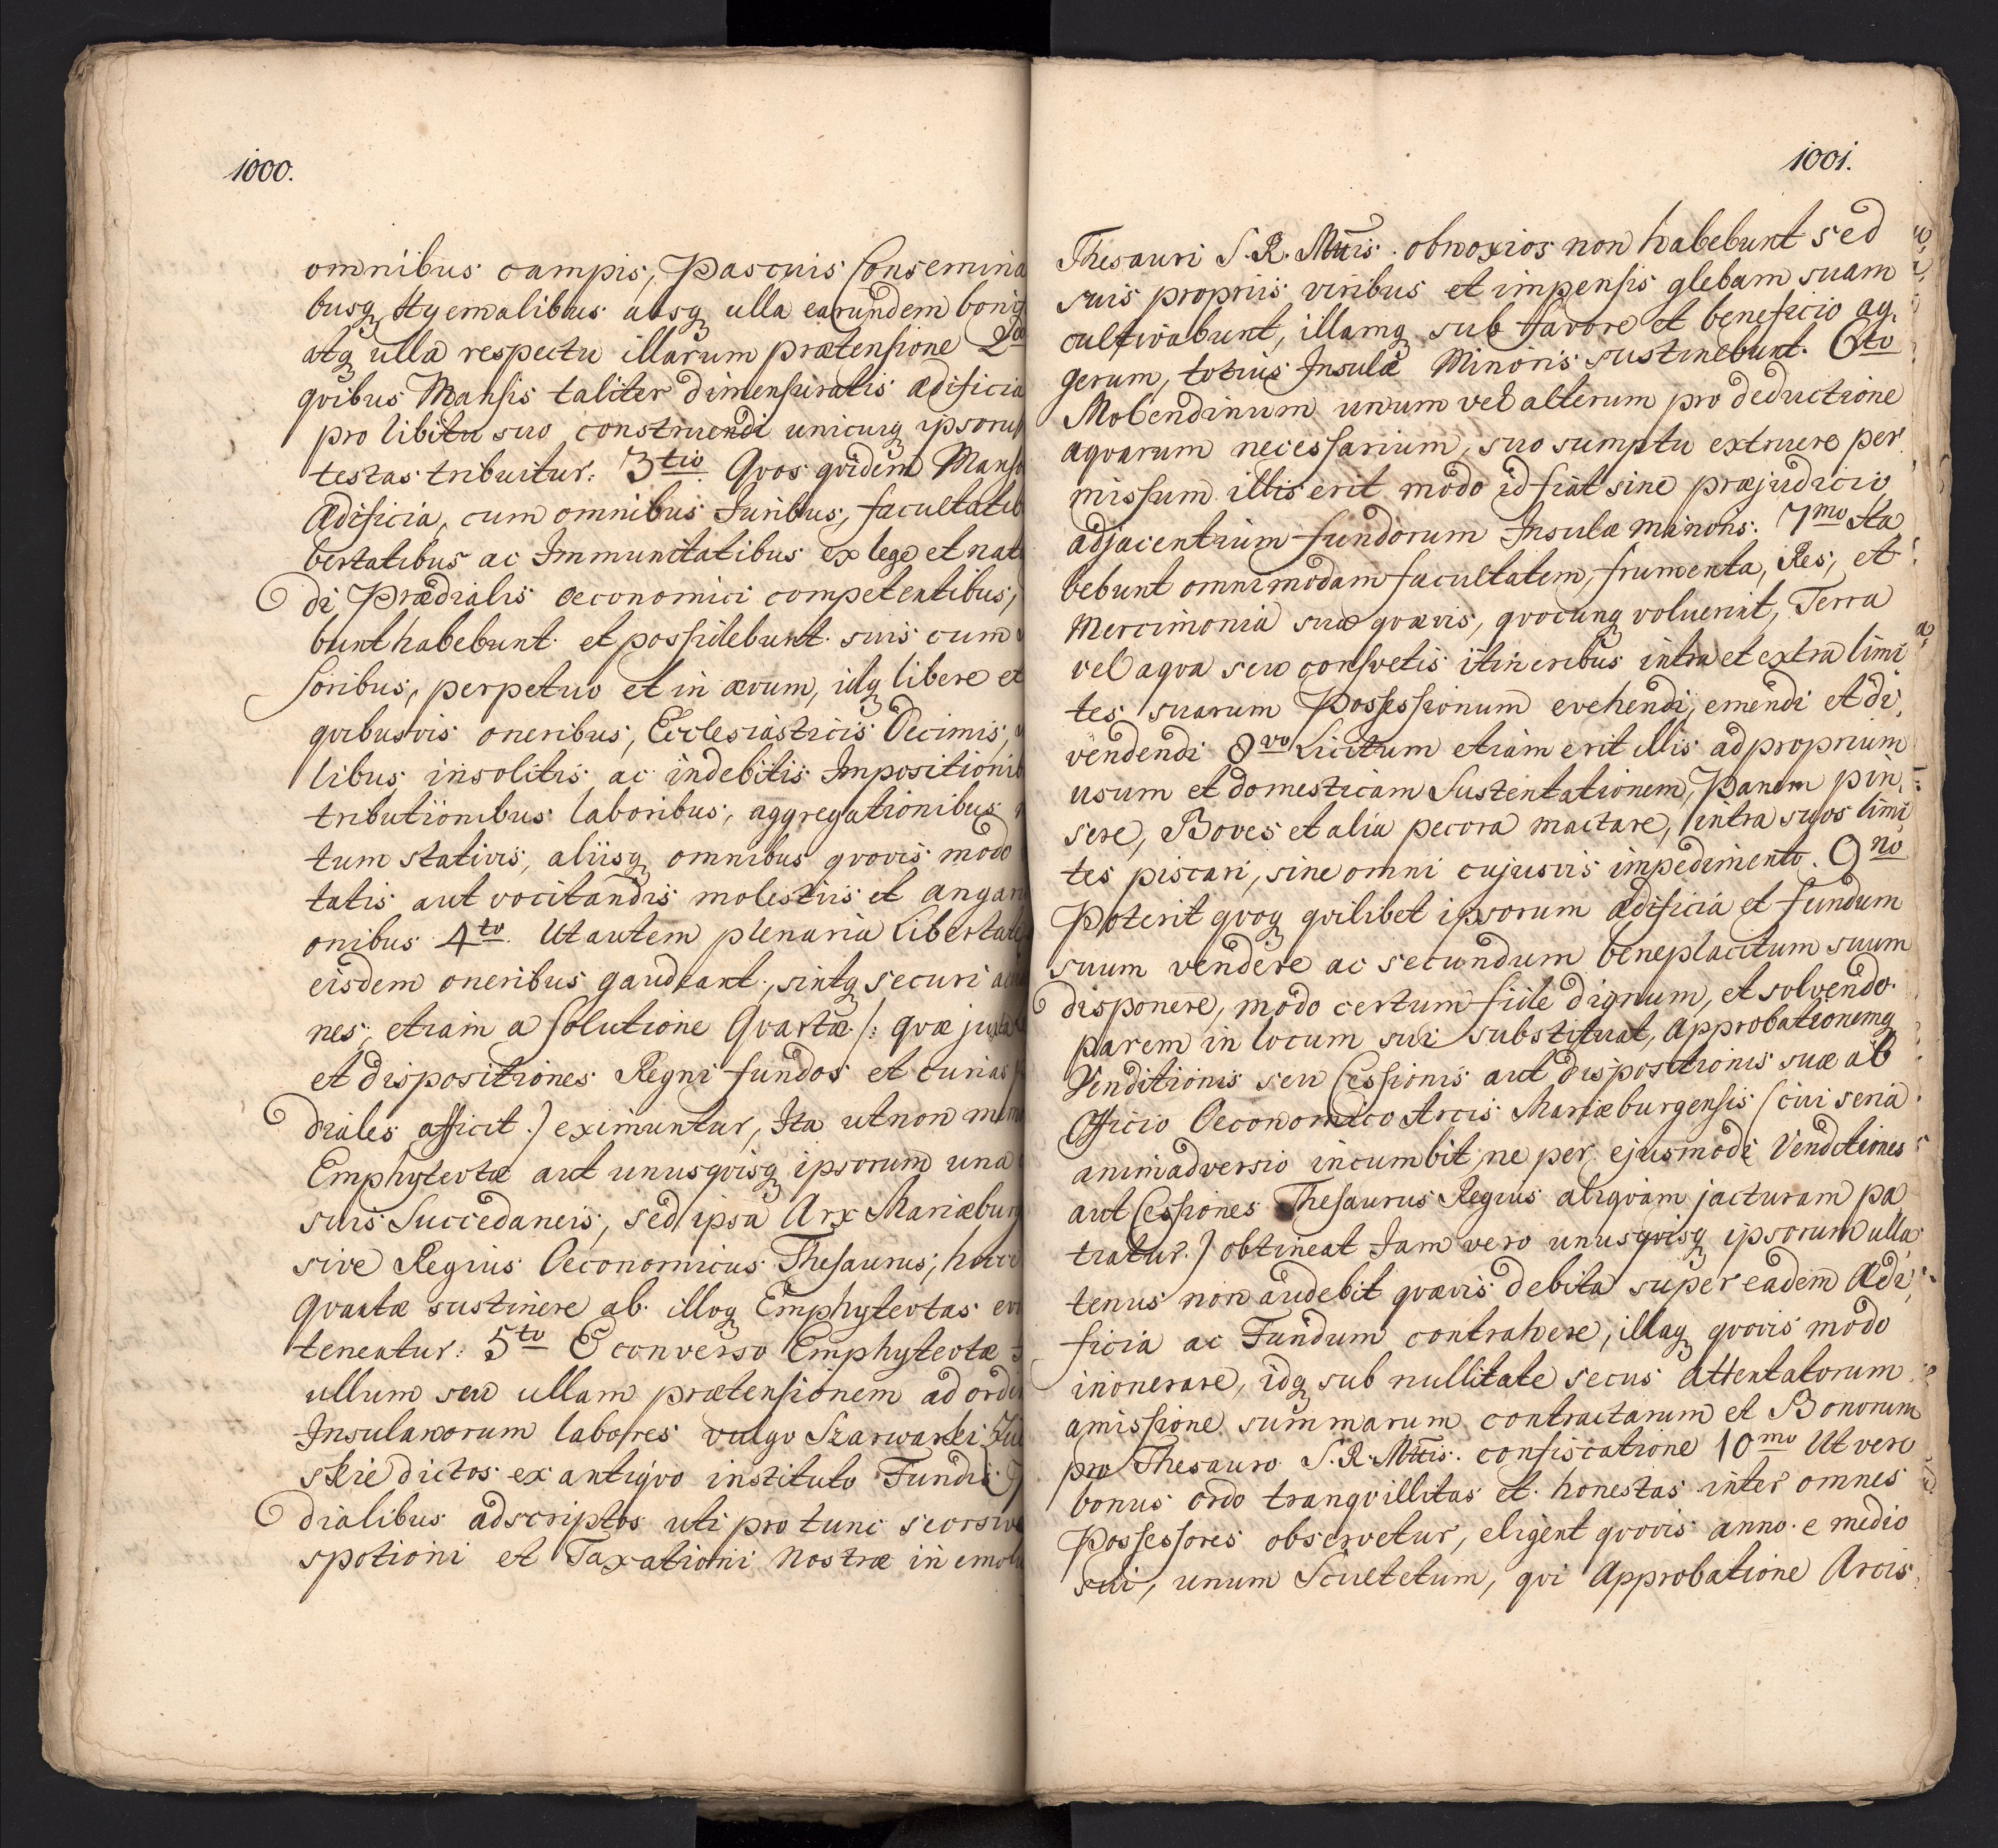 1000.
omnibus campis, Pascuis Consemina
busq Hyemalibus absq ulla earundem bonif
atq ulla respectu illarum prætensione 2do
qvibus Mansis taliter dimensuratis ædificia
pro libitu suo construendi unicuiq ipsorum
testas tribuitur. 3tio. Qvos qvidem Manso
Ædificia, cum omnibus Juribus, facultatib
bertatibus ac Immunitatibus ex lege et natu
di Prædialis œconomici competentibus,
bunt habebunt et possidebunt suis cum
soribus, perpetuo et in ævum, idq libere et
qvibusvis oneribus, Ecclesiasticis Decimis,
libus insolitis ac indebitis Impositionib
tributionibus laboribus, aggregationibus
tum stativis, aliisq omnibus qvovis modo
tatis aut vocitandis molestiis et angari
onibus 4to. Ut autem plenaria Libertate
eisdem oneribus gaudeant, sintq securi
nes, etiam a solutione Qvartæ /: qvæ juxta
et dispositiones Regni fundos et curias
diales afficit.) eximuntur, Ita ut non
Emphyteotæ aut unusqvisq ipsorum una
suis Succedaneis, sed ipsa Arx Mariæburg
sive Regius Oeconomicus Thesaurus,
Qvartæ sustinere ab illoq Emphyteotas
teneatur. 5to E converso Emphyteotæ
ullum seu ullam prætensionem ad ordi
Insulanorum labores vulgo Szarwarki
skie dictos ex antiqvo instituto Fundis
dialibus adscriptos uti pro tunc seorsive
spotioni et Taxationi Nostræ in emolu
1001.
Thesauri S. R. Mttis. obnoxios non habebunt sed
suis propriis viribus et impensis glebam suam
cultivabunt, illamq sub favore et beneficio ag,
gerum, totius Insulæ Minoris sustinebunt. 6to
Molendinum unum vel alterum pro deductione
aqvarum necessarium, suo sumptu extruere per
missum illis erit modo id fiat sine præjudicio
adjacentium fundorum Insulæ minoris. 7mo Ha
bebunt omnimodam facultatem, frumenta, Res, et
Mercimonia sua qvævis, qvocunq voluerint, Terra
vel aqva seu consvetis itineribus intra et extra limi
tes suarum Possessionum evehendi, emendi et di,
vendendi 8vo Licitum etiam erit illis ad proprium
usum et domesticam Sustentationem, Panem pin,
sere, Boves et alia pecora mactare, intra suos limi
tes piscari, sine omni cujusvis impedimento. 9no
Poterit qvoq qvilibet ipsorum ædificia et fundum
suum vendere ac secundum beneplacitum suum
disponere, modo certum fide dignum, et solvendo
parem in locum sui substituat, Approbationemq
Venditionis seu Cessionis aut dispositionis suæ ab
Officio Oeconomico Arcis Mariæburgensis (cui seria
animadversio incumbit, ne per ejusmodi Venditiones
aut Cessiones Thesaurus Regius aliqvam jacturam pa
tiatur.) obtineat Jam vero unusqvisq ipsorum ulla
tenus non audebit qvævis debita super eadem Ædi,
ficia ac Fundum contrahere, illaq qvovis modo
inonerare, idq sub nullitate secus Attentatorum
amissione summarum contractarum et Bonorum
pro Thesauro S. R. Mttis. confiscatione 10mo Ut vero
bonus ordo tranqvillitas et honestas inter omnes
Possessores observetur, eligent qvovis anno e medio
sui, unum Scultetum, qvi Approbatione Arcis